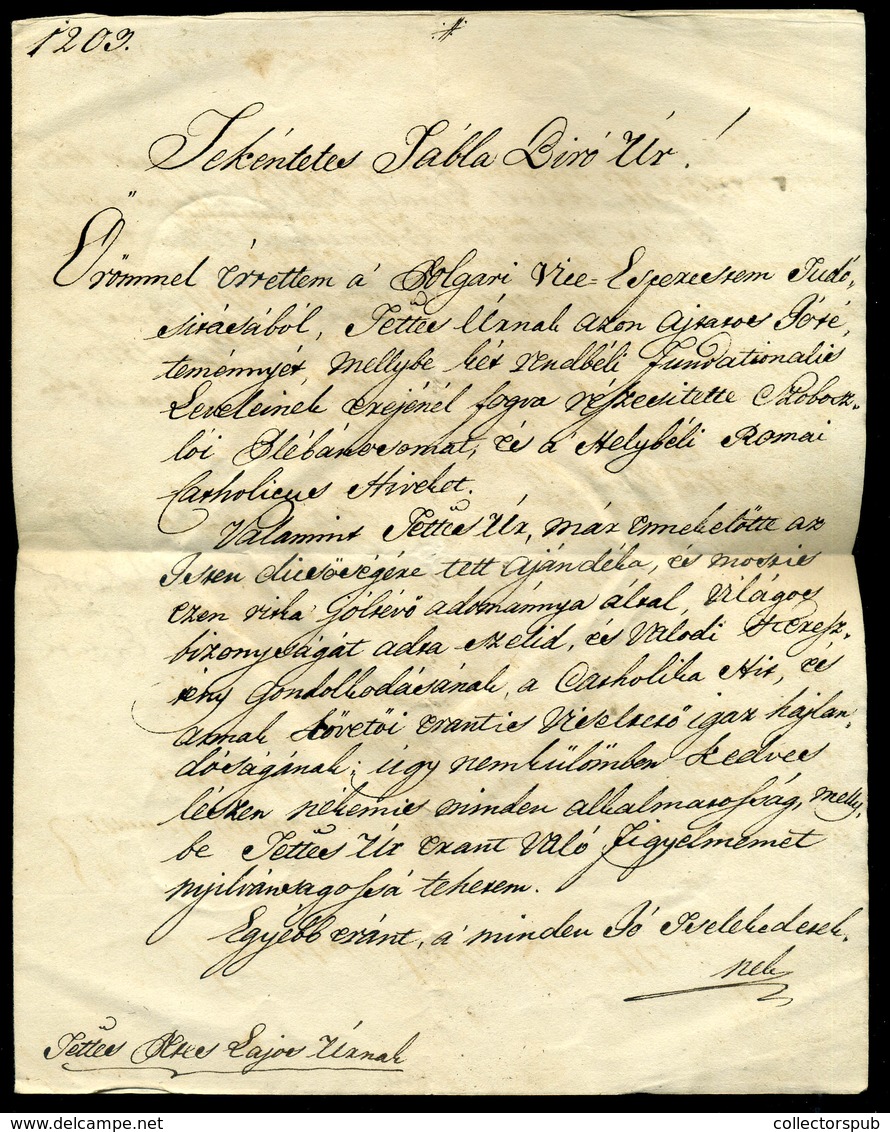 1203.
Tekéntetes Tábla Biró Úr!
Örömmel értettem á Polgari Vice-Esperestem Tudó-
sitásából, Tettes Úrnak azon ajtatos Jóté,
teménnyét, mellybe két rendbéli Fundationalis
Leveleinek erejénél fogva részesitette Szobosz-
lói Plébánosomat, és á Helybéli Romai
Catholicus Hiveket.
Valamint Tettes Úr, már ennekelötte az
Isten dicsöségére tett ajándéka, és mostis
ezen ritka Jóltévö adománnya által, Világos
bizonyságát adta szelid, és Valodi Keresz-
tény Gondolkodásának, a Catholika Hit, és
annak követöi erantis Viseltetö igaz hajlan-
dóságának; úgy nemkülömben kedves
lészen nékemis minden alkalmatosság, melly,
be Tettes Úr erant Való Figyelmemet
nyilvánságossá tehetem.
Egyébb eránt, á minden Jó Tselekedetek-
nek
Tettes Lajos Úrnak
collectorspub